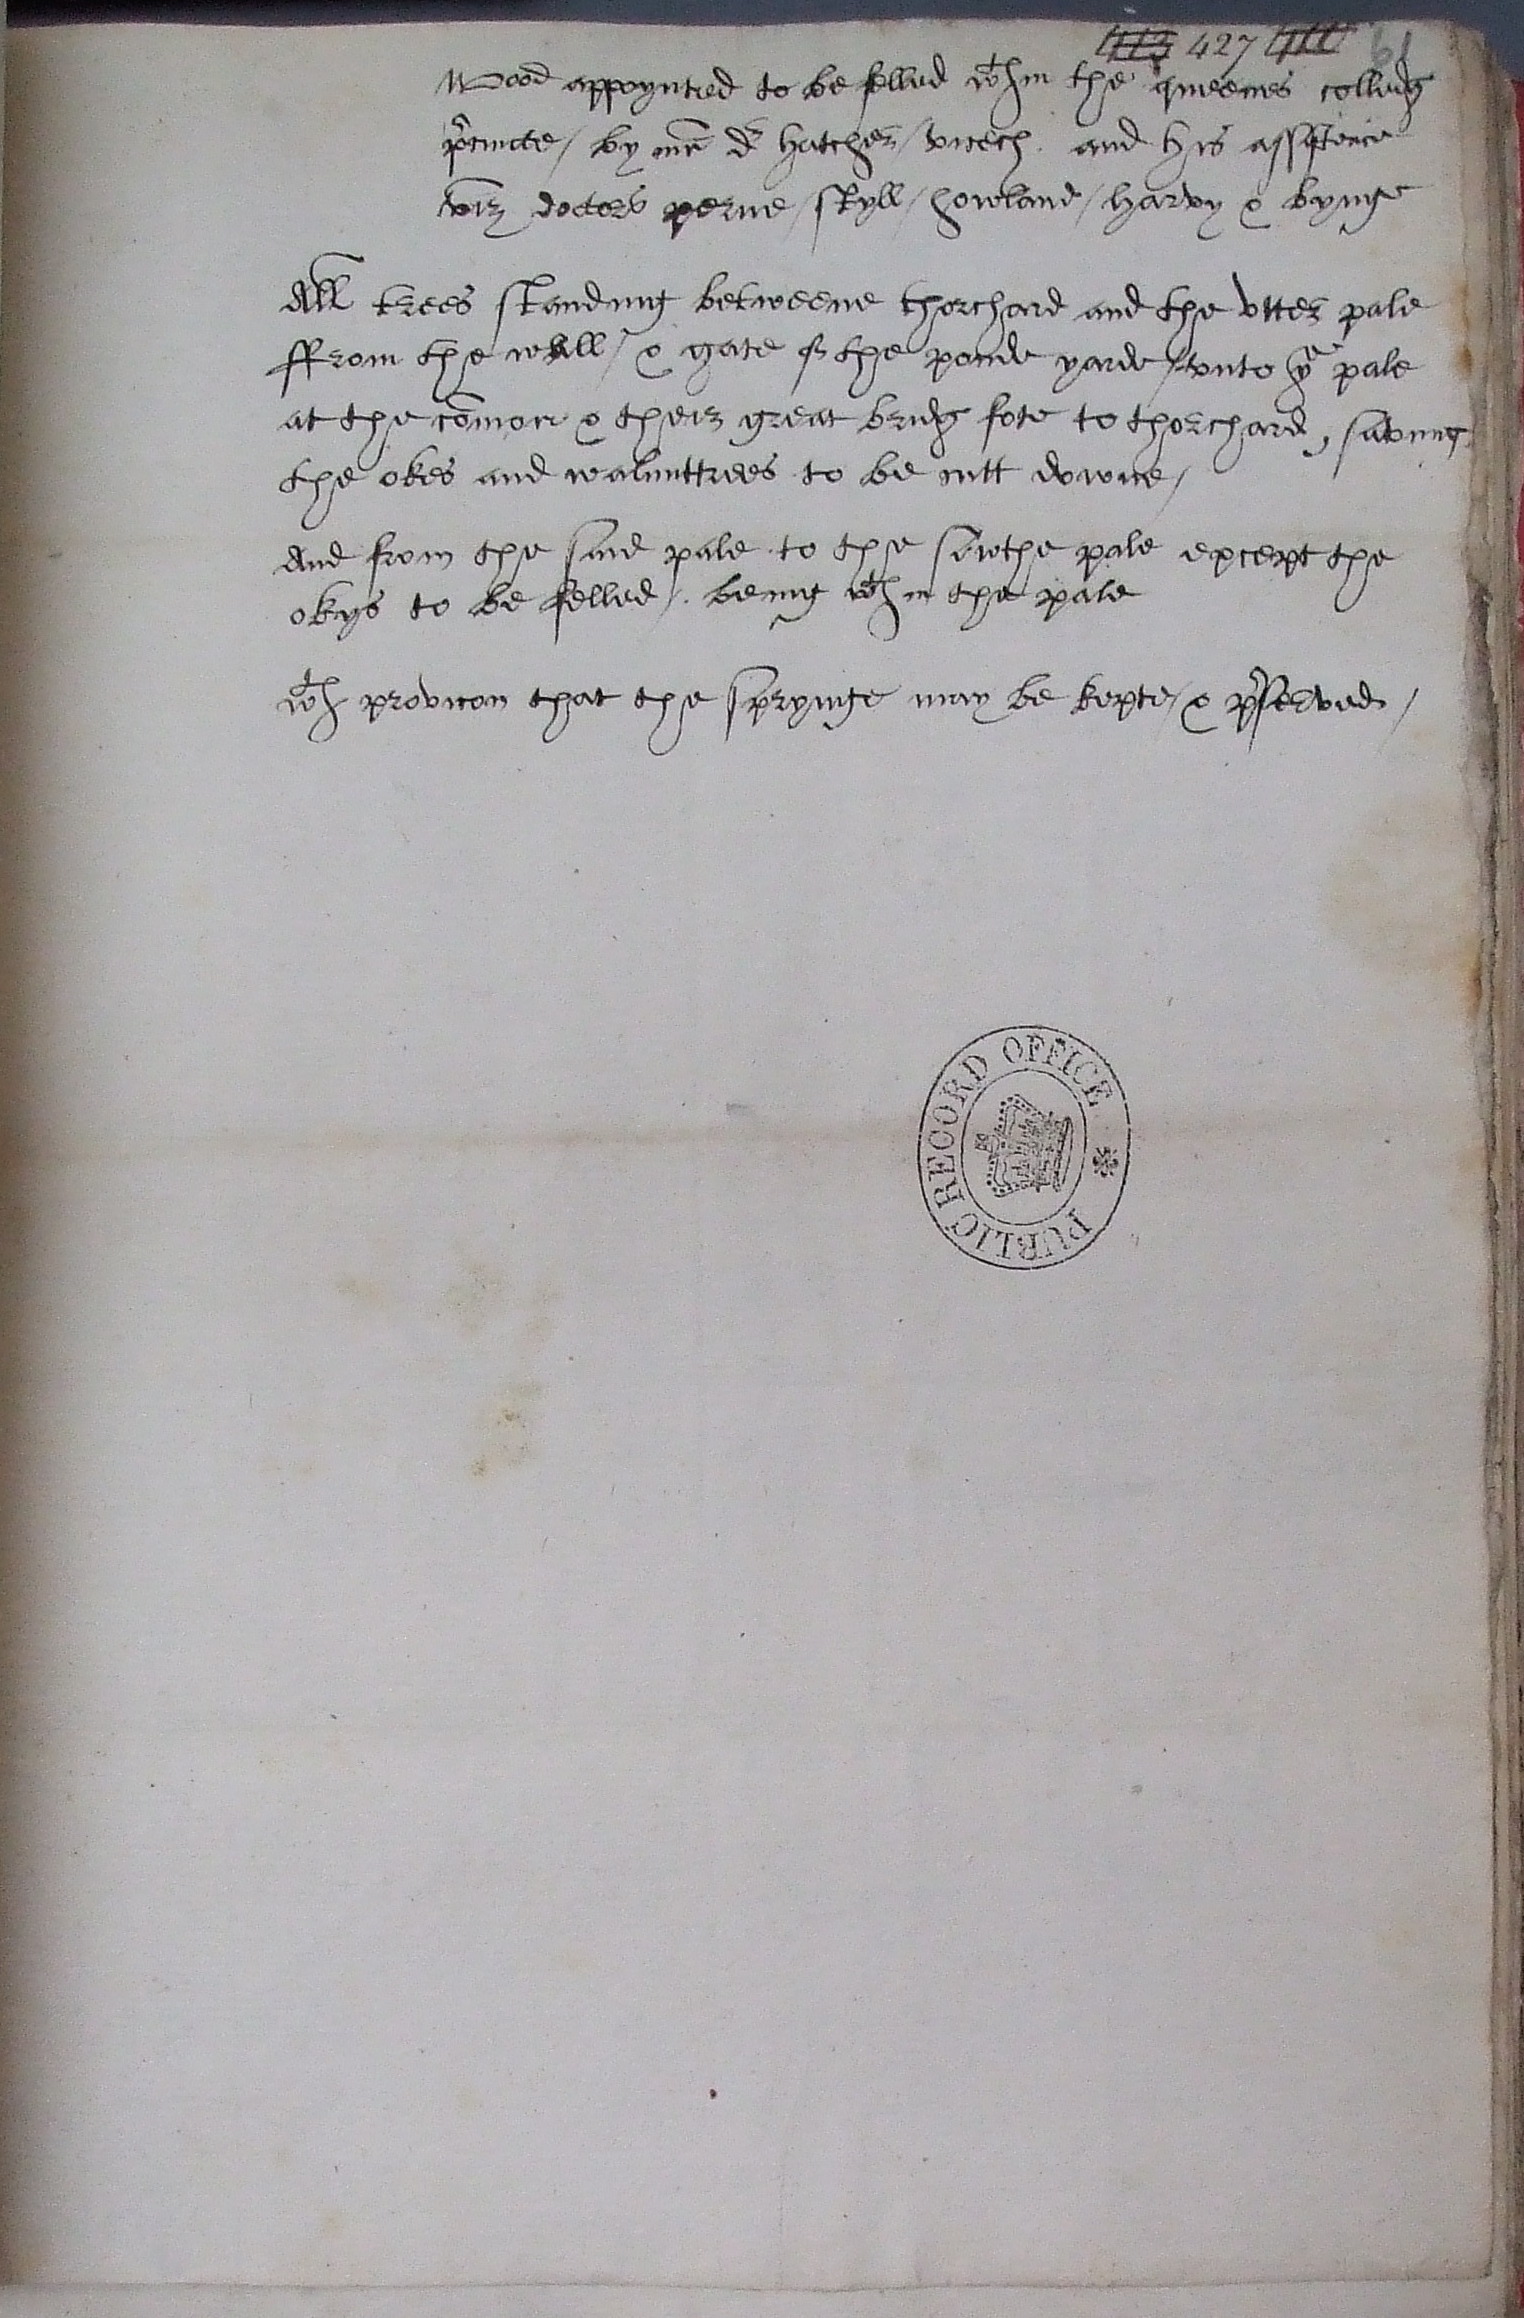 427 61
Wood appoynted to be felled wth in the queenes colledg
p̃cincte / by mr dr hatcher / vicech. and his assistence
viz doctors perne / styll / howland / harvy & bynge
All trees standing betweene thorchard and the vtter pale
ffrom the wall / & gate of the ponde yarde / vnto ye pale
at the com̄on & their great bridg fote to thorchard, saving
the okes and walnuttrees to be cutt downe /
And from the said pale to the sowthe pale except the
okys to be felled /. being wth in the pale
wth provicon that the sprynge may be kepte / & p̃served /
PUBLIC RECORD OFFICE